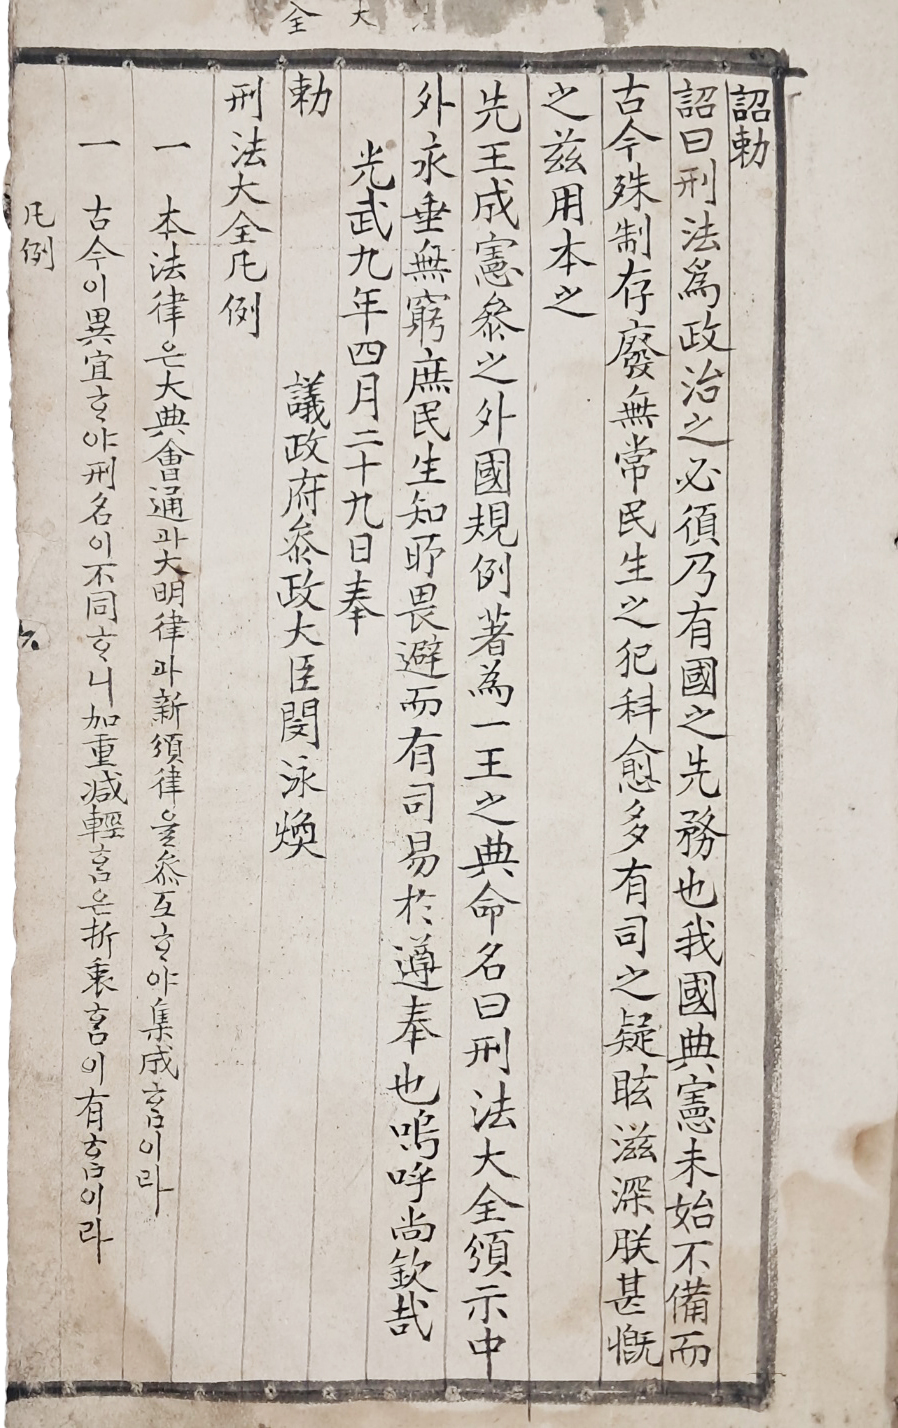 大全
詔勅
詔曰刑法爲政治之必須乃有國之先務也我國典憲未始不備而
古今殊制存廢無常民生之犯科愈多有司之疑眩滋深朕甚慨
之玆用本之
先王成憲叅之外國規例著爲一王之典命名曰刑法大全頒示中
外永垂無窮庶民生知所畏避而有司易於遵奉也嗚呼尙欽哉
光武九年四月二十九日奉
勅
議政府叅政大臣閔泳煥
刑法大全凡例
一 本法律은大典會通과大明律과新頒律을叅互ᄒᆞ야集成ᄒᆞᆷ이라
一 古今이異宜ᄒᆞ야刑名이不同ᄒᆞ니加重減輕ᄒᆞᆷ은折衷ᄒᆞᆷ이有ᄒᆞᆷ이라
凡例